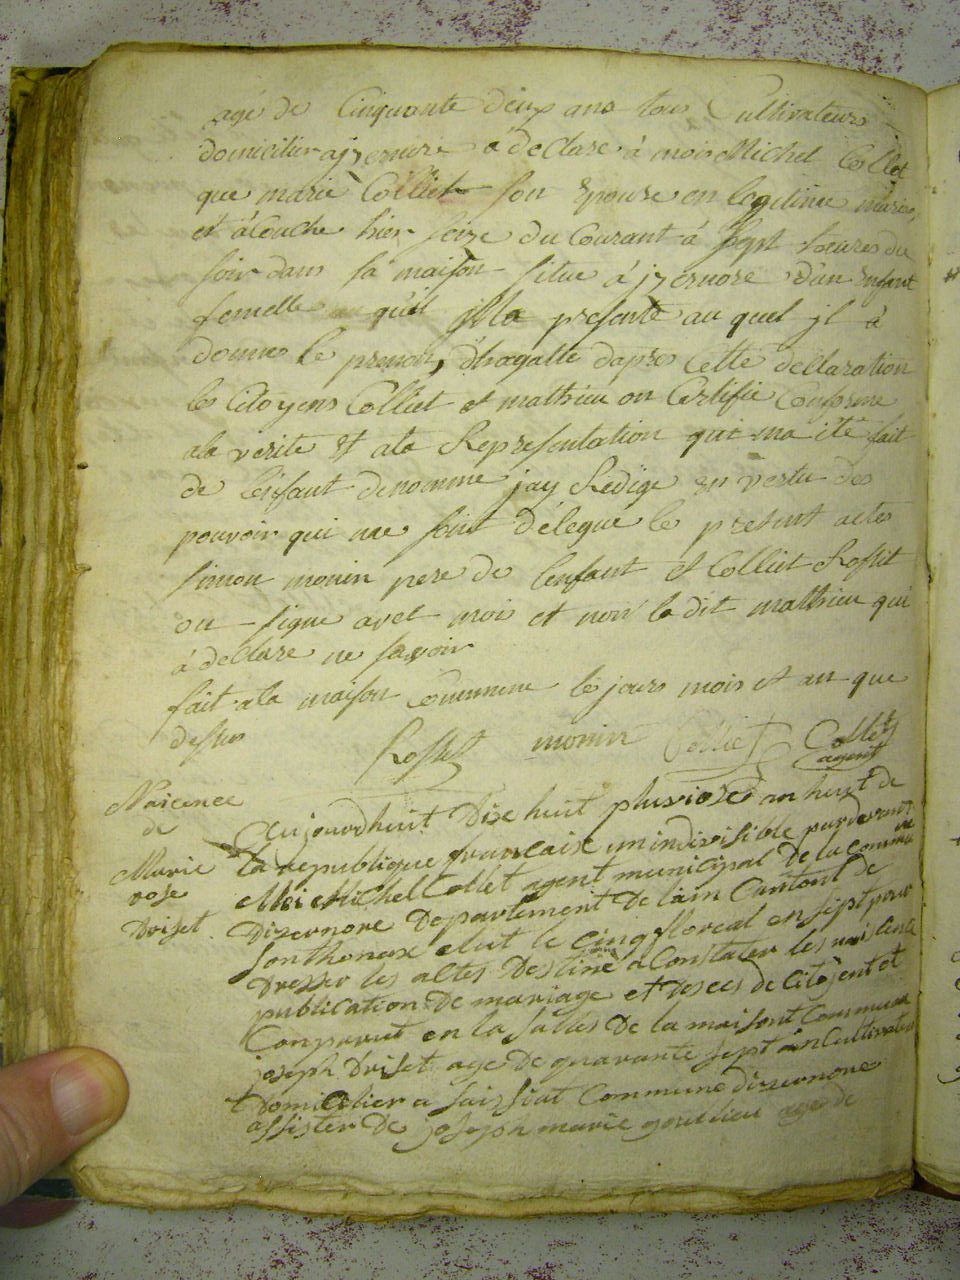 agé de Cinquante deux ans tous Cultivateurs
domicilier a jzernore a declare à moi Michel Collet
que marie Colliet son Epouse en legitime mariage
et àcouche hier seize du Courant à sept heures du
soir dans sa maison situe à jzernore d'un Enfant
femelle qu'il ma presenté au quel jl à
donner le prenom, d'hagatte dapres Cette declaration
les Citoyens Colliet et mathieu on Certifie Conforme
ala verite et ala Representation qui ma ité fait
de l'enfant denomme jay Redige en vertu des
pouvoir qui me sont délegué le present actes
simon monin pere de l'enfant et Colliet Rosset
on signe avet moi et non le dit mathieu qui
à declare ne savoir
fait ala maison Commune les jours mois et an que
dessus
Rosset monin Colliet Collet
agent
Naicence
de
Marie
rose
Driset
Aujourdhuit Dixe huit pluviose an huit de
la republique francaise unindivisible pardevant
Moi Michel Collet agent municipal de la commune
Dizernore Departement de lain Cantont de
Sonthonax elut le cinq floreal en sept pour
Dresser les actes Destine a Constater les naissence
publication De mariage et Deces de Citoyent et
Conparut en la salles De la maisont Commune
joseph Driset age De quarante sept an Cultivateur
Domicilier a saissiat Commune dizernore
assister De joseph marie age de